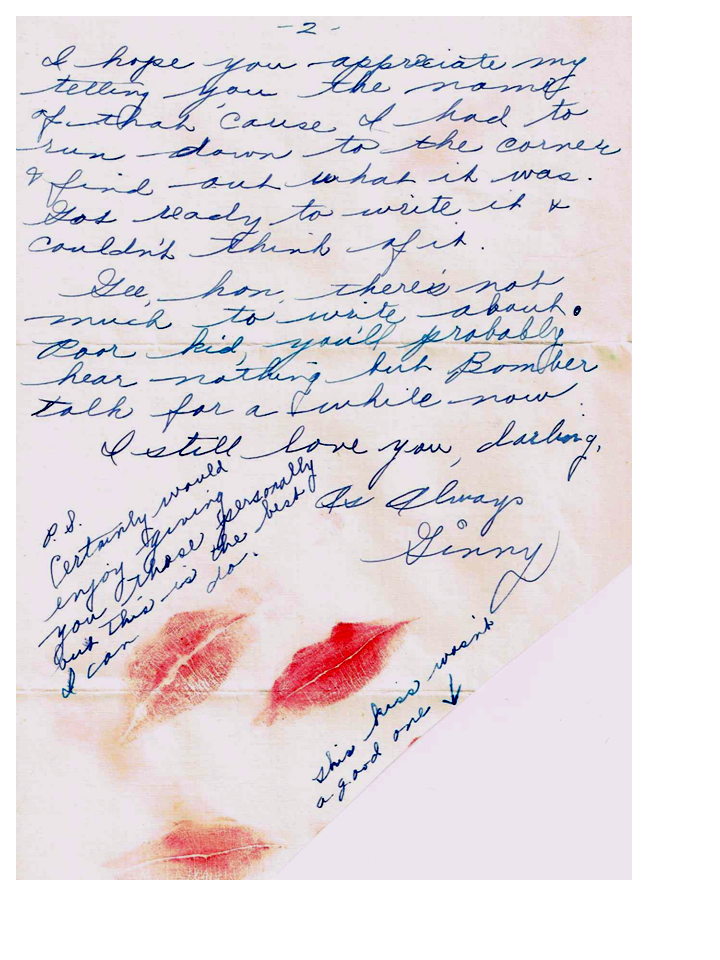 -2-
I hope you appreciate my
telling you the name
of that 'cause I had to
run down to the corner
& find out what it was.
Got ready to write it &
couldn't think of it.
Gee, hon, there's not
much to write about.
Poor kid, you'll probably
hear nothing but Bomber
talk for a while now.
I still love you, darling,
As Always
Ginny
P.S.
Certainly would
enjoy giving
you those personally
but this is the best
I can do.
this kiss wasn't
a good one ↓